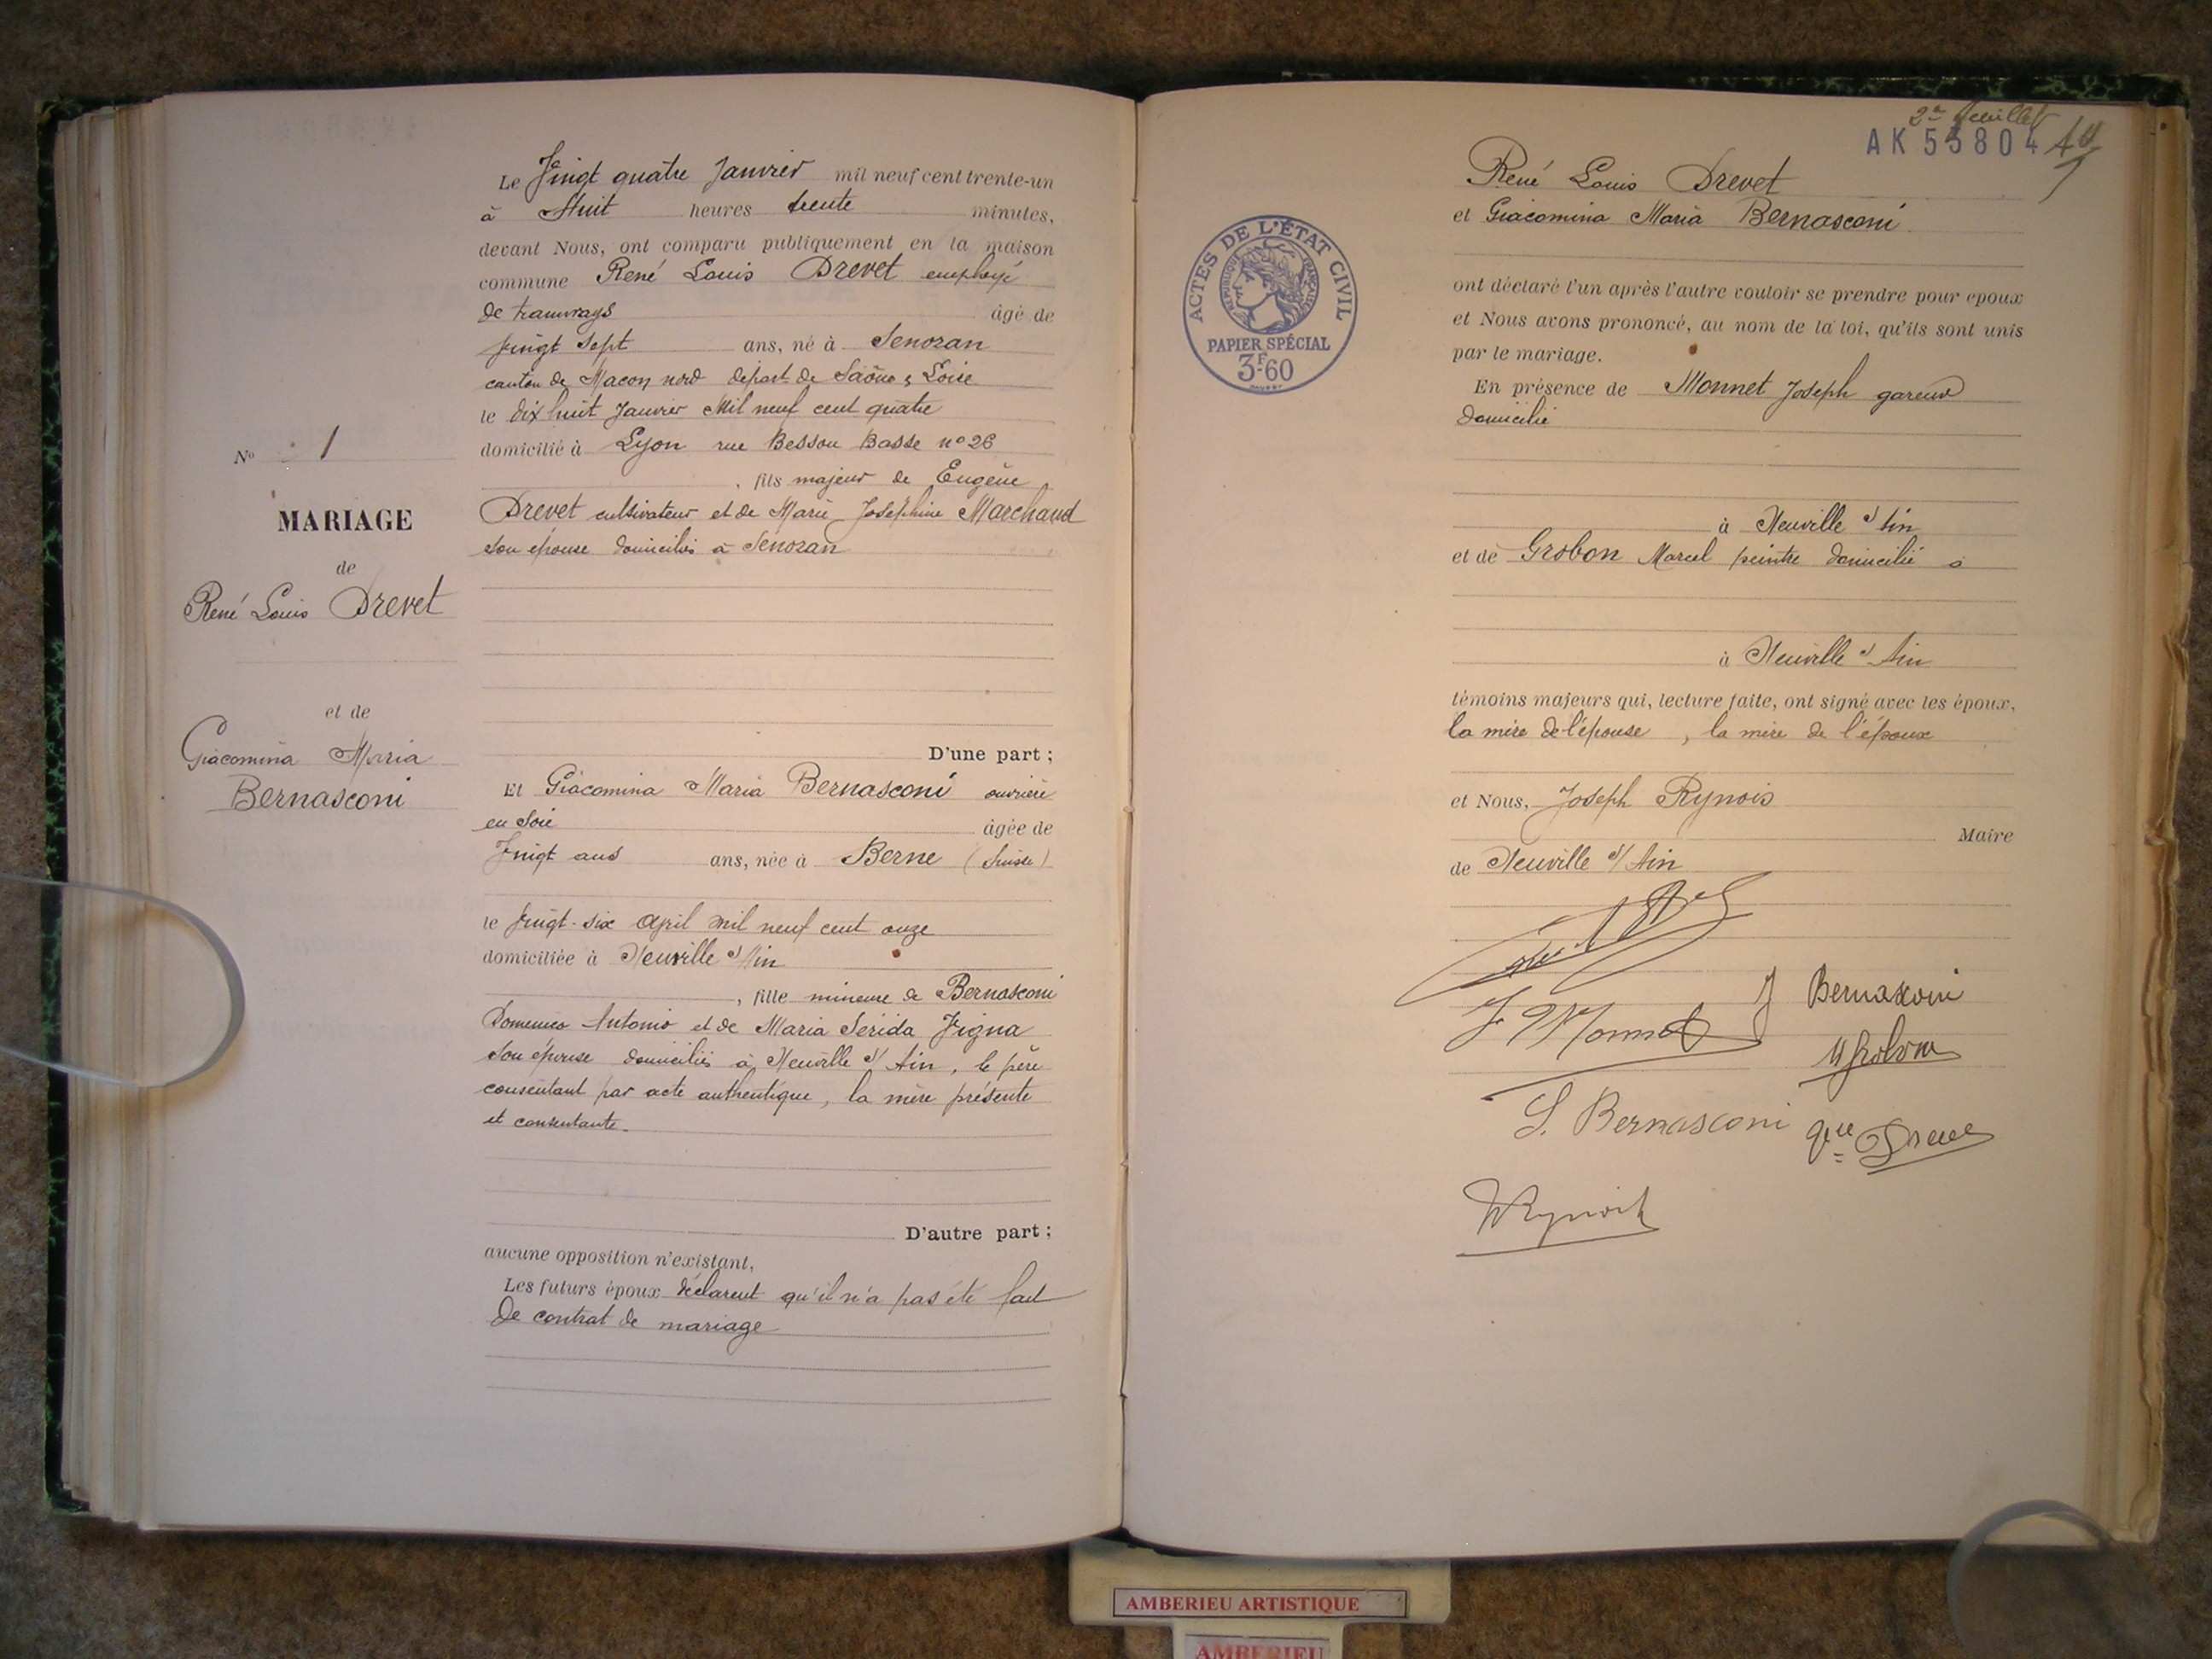 Le Vingt quatre Janvier mil neuf cent trente-un
à Huit heures trente minutes,
devant Nous, ont comparu publiquement en la maison
commune René Louis Drevet employé
de tramways âgé de
Vingt sept ans, né à Senozan
canton de Macon nord depart de Saône & Loire
le dix huit Janvier Mil neuf cent quatre
domicilié à Lyon rue Besson Basse n° 26
, fils majeur de Eugène
Drevet cultivateur et de Marie Joséphine Marchand
son épouse domiciliés à Senozan
N° 1
MARIAGE
de
René Louis Drevet
et de
Giacomina Maria
Bernasconi
D'une part ;
Et Giacomina Maria Bernasconi ouvrière
en soie âgée de
Vingt ans ans, née à Berne (Suisse)
le vingt-six April mil neuf cent onze
domiciliée à Neuville s/ Ain
, fille mineure de Bernasconi
Domenico Antonio et de Maria Serida Vigna
son épouse domiciliés à Neuville s/ Ain, le père
consentant par acte authentique, la mère présente
et consentante.
D'autre part ;
aucune opposition n'existant,
Les futurs époux déclarent qu'il n'a pas été fait
de contrat de mariage
2me feuillet
AK 55804
René Louis Drevet
et Giacomina Maria Bernasconi
ACTES DE L'ÉTAT CIVIL
RÉPUBLIQUE FRANÇAISE
PAPIER SPÉCIAL
3F.60
ont déclaré l'un après l'autre vouloir se prendre pour époux
et Nous avons prononcé, au nom de la loi, qu'ils sont unis
par le mariage.
En présence de Monnet Joseph
domicilié
à Neuville s/ Ain
et de Grobon Marcel peintre domicilié à
à Neuville s/ Ain
témoins majeurs qui, lecture faite, ont signé avec les époux,
la mère de l'épouse, la mère de l'époux
et Nous, Joseph Rynois
Maire
de Neuville s/ Ain
J Monnet
J Bernasconi
M Grobon
S. Bernasconi
AMBERIEU ARTISTIQUE
AMBERIEU